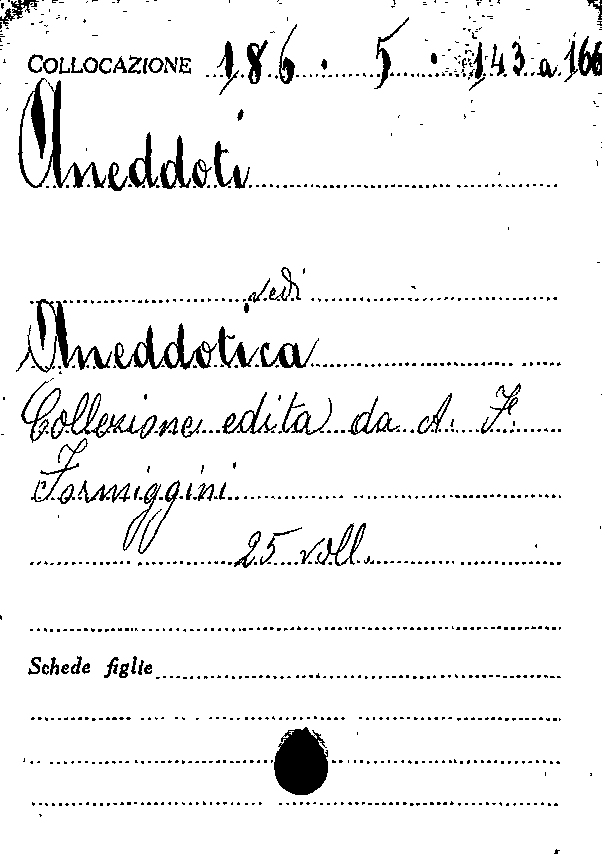 COLLOCAZIONE 186 . 5 . 143 a 166
Aneddoti
vedi
Aneddotica
Collezione edita da A. F.
Formiggini
25 voll.
Schede figlie